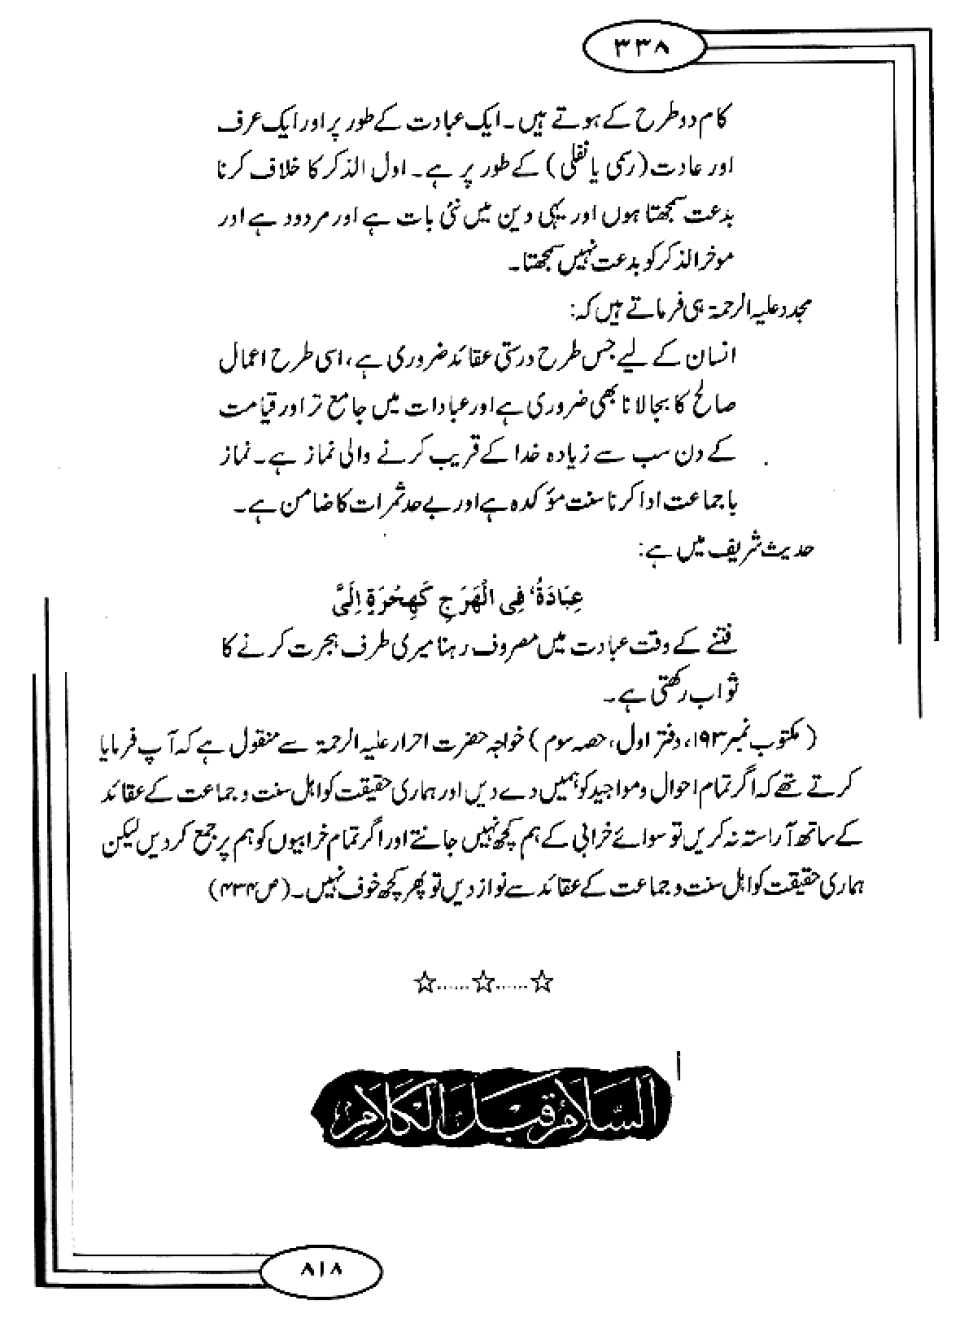 ۳۳۸
کام دو طرح کے ہوتے ہیں۔ ایک عبادت کے طور پر اور ایک عرف
اور عادت (رسمی یا نفلی) کے طور پر ہے۔ اول الذکر کا خلاف کرنا
بدعت سمجھتا ہوں اور یہی دین میں نئی بات ہے اور مردود ہے اور
موخر الذکر کو بدعت نہیں سمجھتا۔
مجدد علیہ الرحمۃ ہی فرماتے ہیں کہ:
انسان کے لیے جس طرح درستی عقائد ضروری ہے، اسی طرح اعمال
صالح کا بجا لانا بھی ضروری ہے اور عبادات میں جامع تر اور قیامت
کے دن سب سے زیادہ خدا کے قریب کرنے والی نماز ہے۔ نماز
باجماعت ادا کرنا سنت مؤکدہ ہے اور بے حد ثمرات کا ضامن ہے۔
حدیث شریف میں ہے:
عِبَادَةُ' فِی الْهَرَجِ کَهِجْرَةٍ اِلَیَّ
فتنے کے وقت عبادت میں مصروف رہنا میری طرف ہجرت کرنے کا
ثواب رکھتی ہے۔
(مکتوب نمبر ۱۹۳، دفتر اول، حصہ سوم) خواجہ حضرت احرار علیہ الرحمۃ سے منقول ہے کہ آپ فرمایا
کرتے تھے کہ اگر تمام احوال و مواجید کو ہمیں دے دیں اور ہماری حقیقت کو اہل سنت و جماعت کے عقائد
کے ساتھ آراستہ نہ کریں تو سوائے خرابی کے ہم کچھ نہیں جانتے اور اگر تمام خرابیوں کو ہم پر جمع کر دیں لیکن
ہماری حقیقت کو اہل سنت و جماعت کے عقائد سے نواز دیں تو پھر کچھ خوف نہیں۔ (ص ۴۳۴)
☆......☆......☆
اَلسَّلَامُ قَبْلَ الْکَلَامِ
۸۱۸